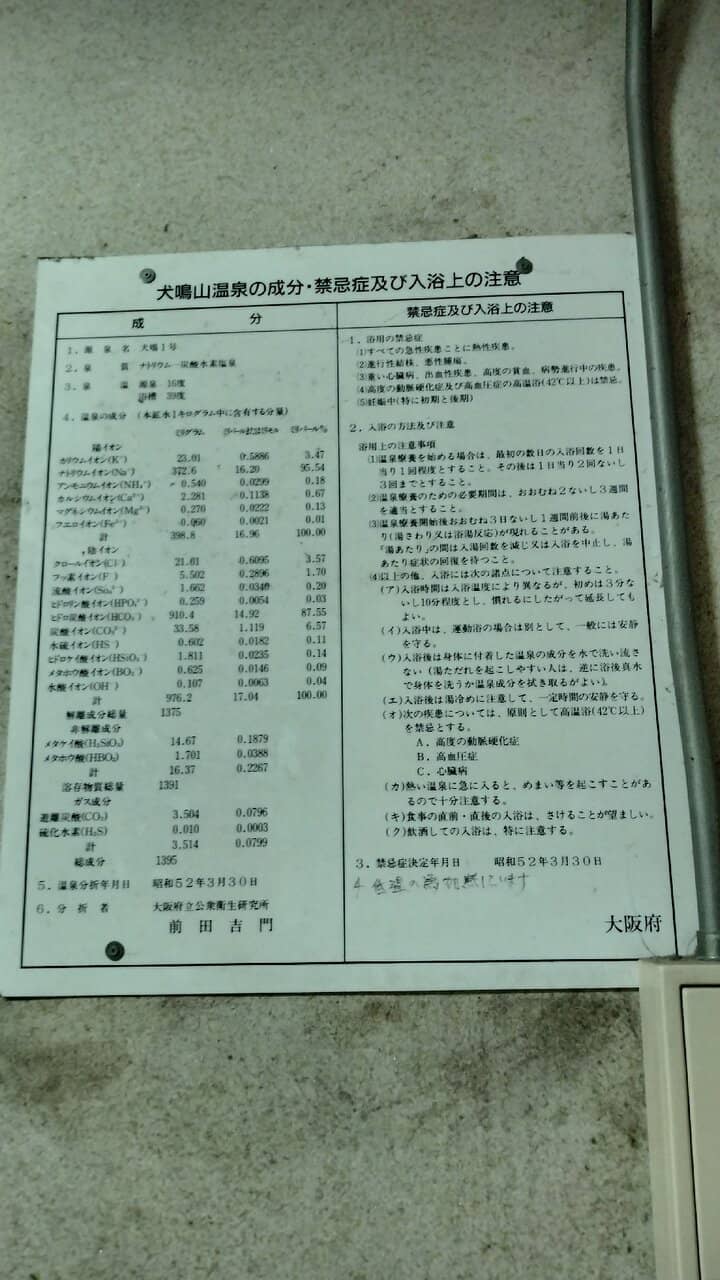 犬鳴山温泉の成分・禁忌症及び入浴上の注意
成　分
1．源　泉　名　犬鳴1号
2．泉　　質　ナトリウム―炭酸水素塩泉
3．泉　　温　源泉　16度
浴槽　39度
4．温泉の成分（本鉱水1キログラム中に含有する分量）
ミリグラム　ミリバール　ミリバール%
陽イオン
カリウムイオン(K⁺)　23.01　0.5886　3.47
ナトリウムイオン(Na⁺)　372.6　16.20　95.54
アンモニウムイオン(NH₄⁺)　0.540　0.0299　0.18
カルシウムイオン(Ca²⁺)　2.281　0.1138　0.67
マグネシウムイオン(Mg²⁺)　0.270　0.0222　0.13
フエロイオン(Fe²⁺)　0.060　0.0021　0.01
計　398.8　16.96　100.00
陰イオン
クロールイオン(Cl⁻)　21.61　0.6095　3.57
フッ素イオン(F⁻)　5.502　0.2896　1.70
硫酸イオン(So₄²⁻)　1.662　0.0346　0.20
ヒドロリン酸イオン(HPO₄²⁻)　0.259　0.0054　0.03
ヒドロ炭酸イオン(HCO₃⁻)　910.4　14.92　87.55
炭酸イオン(CO₃²⁻)　33.58　1.119　6.57
水硫イオン(HS⁻)　0.602　0.0182　0.11
ヒドロケイ酸イオン(HSiO₃⁻)　1.811　0.0235　0.14
メタホウ酸イオン(BO₂⁻)　0.625　0.0146　0.09
水酸イオン(OH⁻)　0.107　0.0063　0.04
計　976.2　17.04　100.00
解離成分総量　1375
非解離成分
メタケイ酸(H₂SiO₃)　14.67　0.1879
メタホウ酸(HBO₂)　1.701　0.0388
計　16.37　0.2267
溶存物質総量　1391
ガス成分
遊離炭酸(CO₂)　3.504　0.0796
硫化水素(H₂S)　0.010　0.0003
計　3.514　0.0799
総成分　1395
5．温泉分析年月日　昭和52年3月30日
6．分　析　者　大阪府立公衆衛生研究所
前田吉門
禁忌症及び入浴上の注意
1．浴用の禁忌症
(1)すべての急性疾患ことに熱性疾患。
(2)進行性結核、悪性腫瘍。
(3)重い心臓病、出血性疾患、高度の貧血、病勢進行中の疾患。
(4)高度の動脈硬化症及び高血圧症の高温浴(42℃以上)は禁忌。
(5)妊娠中(特に初期と後期)
2．入浴の方法及び注意
浴用上の注意事項
(1)温泉療養を始める場合は、最初の数日の入浴回数を1日
当り1回程度とすること。その後は1日当り2回ないし
3回までとすること。
(2)温泉療養のための必要期間は、おおむね2ないし3週間
を適当とすること。
(3)温泉療養開始後おおむね3日ないし1週間前後に湯あた
り(湯さわり又は浴湯反応)が現れることがある。
「湯あたり」の間は入湯回数を減じ又は入浴を中止し、湯
あたり症状の回復を待つこと。
(4)以上の他、入浴には次の諸点について注意すること。
(ア)入浴時間は入浴温度により異なるが、初めは3分な
いし10分程度とし、慣れるにしたがって延長しても
よい。
(イ)入浴中は、運動浴の場合は別として、一般には安静
を守る。
(ウ)入浴後は身体に付着した温泉の成分を水で洗い流さ
ない(湯ただれを起こしやすい人は、逆に浴後真水
で身体を洗うか温泉成分を拭き取るがよい)。
(エ)入浴後は湯冷めに注意して、一定時間の安静を守る。
(オ)次の疾患については、原則として高温浴(42℃以上)
を禁忌とする。
A．高度の動脈硬化症
B．高血圧症
C．心臓病
(カ)熱い温泉に急に入ると、めまい等を起こすことがあ
るので十分注意する。
(キ)食事の直前・直後の入浴は、さけることが望ましい。
(ク)飲酒しての入浴は、特に注意する。
3．禁忌症決定年月日　昭和52年3月30日
4 低温の為加熱しています
大阪府